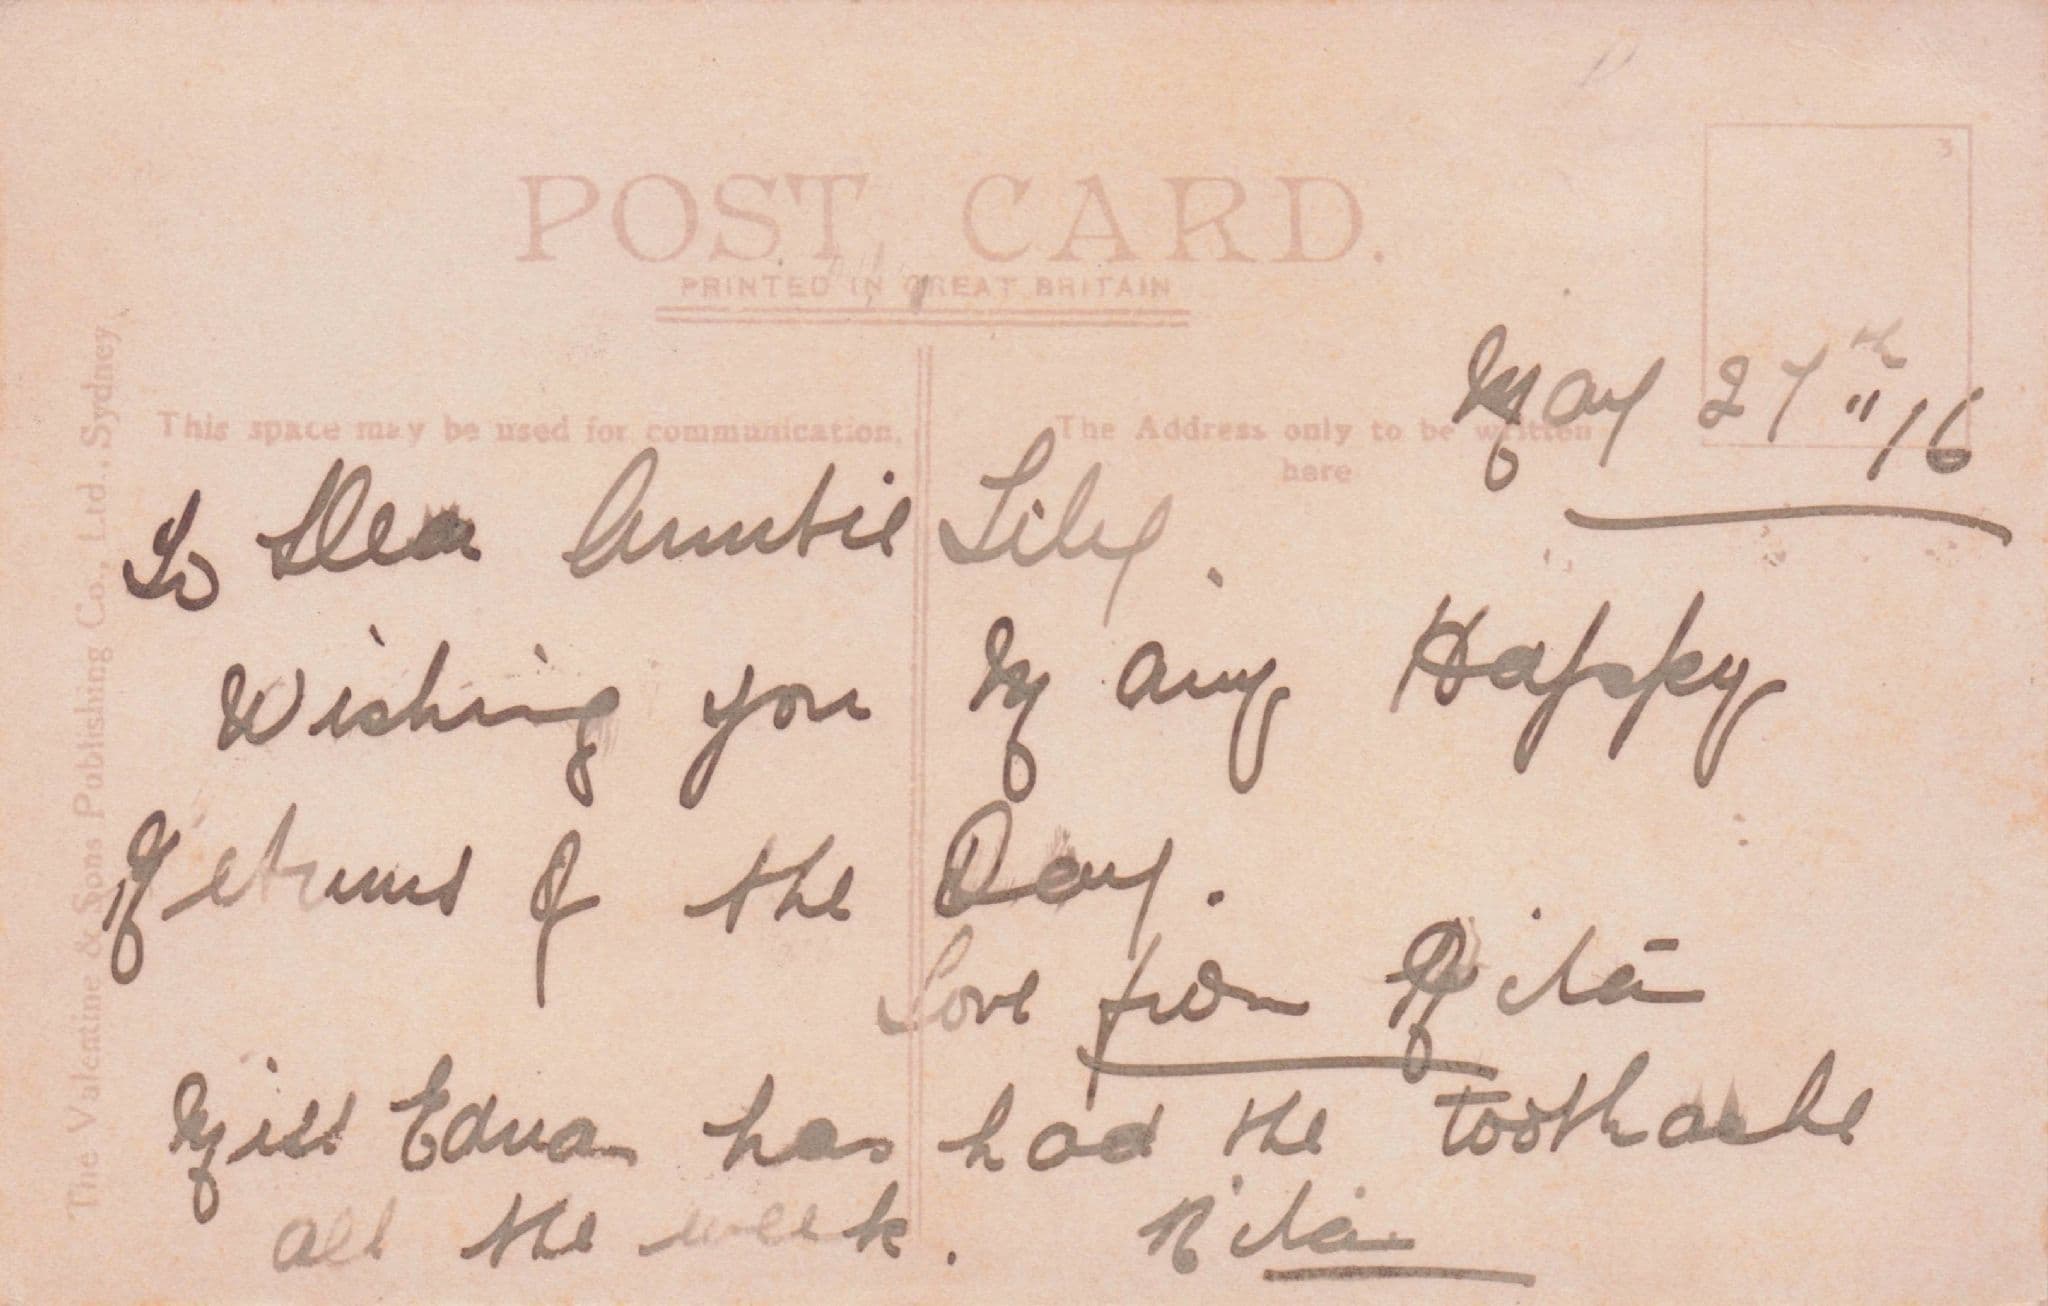 POST CARD.
PRINTED IN GREAT BRITAIN
3
May 27th "16
This space may be used for communication.
The Address only to be written
here
To Dear Auntie Lily.
Wishing you Many Happy
Returns of the Day.
Love from Rita
Miss Edna has had the toothache
all the week. Rita
The Valentine & Sons Publishing Co., Ltd., Sydney